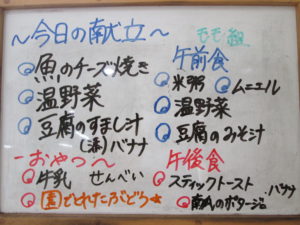 ～今日の献立～
魚のチーズ焼き
温野菜
豆腐のすまし汁
(済)バナナ
おやつ～
牛乳 せんべい
園でとれたぶどう★
もも組
午前食
米粥 ムニエル
温野菜
豆腐のみそ汁
午後食
スティックトースト
バナナ
南瓜のポタージュ